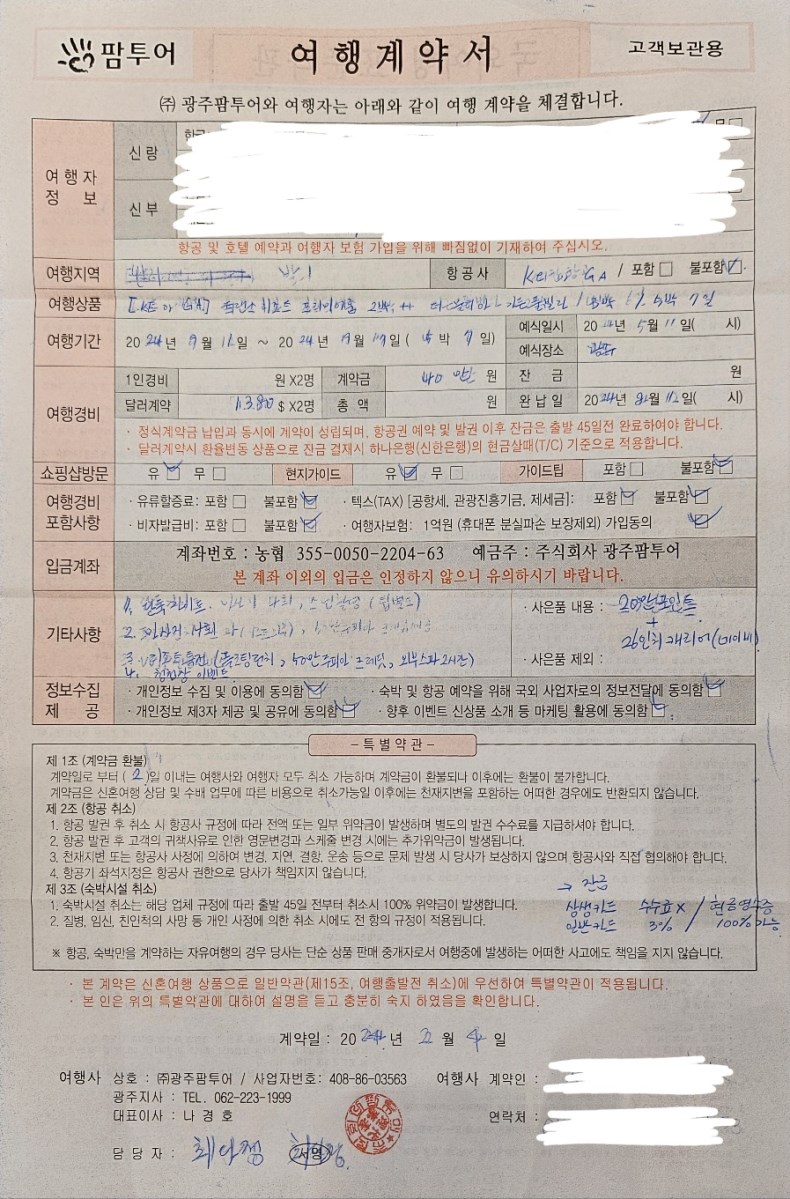 팜투어 여행계약서 고객보관용
㈜ 광주팜투어와 여행자는 아래와 같이 여행 계약을 체결합니다.
여행자 정보
신랑
신부
항공 및 호텔 예약과 여행자 보험 가입을 위해 빠짐없이 기재하여 주십시오.
여행지역 발리 항공사 GA / 포함 불포함
여행상품
여행기간 2024년 9월 일 ~ 2024년 9월 일( 박 일) 예식일시 2024년 5월 11일( 시)
예식장소
여행경비
1인경비 원 X2명 계약금 40 만 원 잔금 원
달러계약 $ X2명 총액 원 완납일 2024년 월 일( 시)
· 정식계약금 납입과 동시에 계약이 성립되며, 항공권 예약 및 발권 이후 잔금은 출발 45일전 완료하여야 합니다.
· 달러계약시 환율변동 상품으로 잔금 결제시 하나은행(신한은행)의 현금살때(T/C) 기준으로 적용합니다.
쇼핑샵방문 유 무 현지가이드 유 무 가이드팁 포함 불포함
여행경비 포함사항
· 유류할증료: 포함 불포함 · 텍스(TAX) [공항세, 관광진흥기금, 제세금]: 포함 불포함
· 비자발급비: 포함 불포함 · 여행자보험: 1억원 (휴대폰 분실파손 보장제외) 가입동의
입금계좌 계좌번호 : 농협 355-0050-2204-63 예금주 : 주식회사 광주팜투어
본 계좌 이외의 입금은 인정하지 않으니 유의하시기 바랍니다.
기타사항
· 사은품 내용 : 20만포인트
+
26인치 캐리어(네이비)
· 사은품 제외 :
정보수집 제공
· 개인정보 수집 및 이용에 동의함 · 숙박 및 항공 예약을 위해 국외 사업자로의 정보전달에 동의함
· 개인정보 제3자 제공 및 공유에 동의함 · 향후 이벤트 신상품 소개 등 마케팅 활용에 동의함
- 특별약관 -
제 1조 (계약금 환불)
계약일로 부터 ( 2 )일 이내는 여행사와 여행자 모두 취소 가능하며 계약금이 환불되나 이후에는 환불이 불가합니다.
계약금은 신혼여행 상담 및 수배 업무에 따른 비용으로 취소가능일 이후에는 천재지변을 포함하는 어떠한 경우에도 반환되지 않습니다.
제 2조 (항공 취소)
1. 항공 발권 후 취소 시 항공사 규정에 따라 전액 또는 일부 위약금이 발생하며 별도의 발권 수수료를 지급하셔야 합니다.
2. 항공 발권 후 고객의 귀책사유로 인한 영문변경과 스케줄 변경 시에는 추가위약금이 발생됩니다.
3. 천재지변 또는 항공사 사정에 의하여 변경, 지연, 결항, 운송 등으로 문제 발생 시 당사가 보상하지 않으며 항공사와 직접 협의해야 합니다.
4. 항공기 좌석지정은 항공사 권한으로 당사가 책임지지 않습니다.
제 3조 (숙박시설 취소)
1. 숙박시설 취소는 해당 업체 규정에 따라 출발 45일 전부터 취소시 100% 위약금이 발생합니다.
2. 질병, 임신, 친인척의 사망 등 개인 사정에 의한 취소 시에도 전 항의 규정이 적용됩니다.
→ 잔금
상생카드 수수료 X / 현금영수증
일반카드 3% / 100% 가능
※ 항공, 숙박만을 계약하는 자유여행의 경우 당사는 단순 상품 판매 중개자로서 여행중에 발생하는 어떠한 사고에도 책임을 지지 않습니다.
· 본 계약은 신혼여행 상품으로 일반약관(제15조, 여행출발전 취소)에 우선하여 특별약관이 적용됩니다.
· 본 인은 위의 특별약관에 대하여 설명을 듣고 충분히 숙지 하였음을 확인합니다.
계약일 : 2024년 2월 4일
여행사 상호 : ㈜광주팜투어 / 사업자번호: 408-86-03563 여행사 계약인 :
광주지사 : TEL. 062-223-1999
대표이사 : 나 경 호 연락처 :
담당자 :